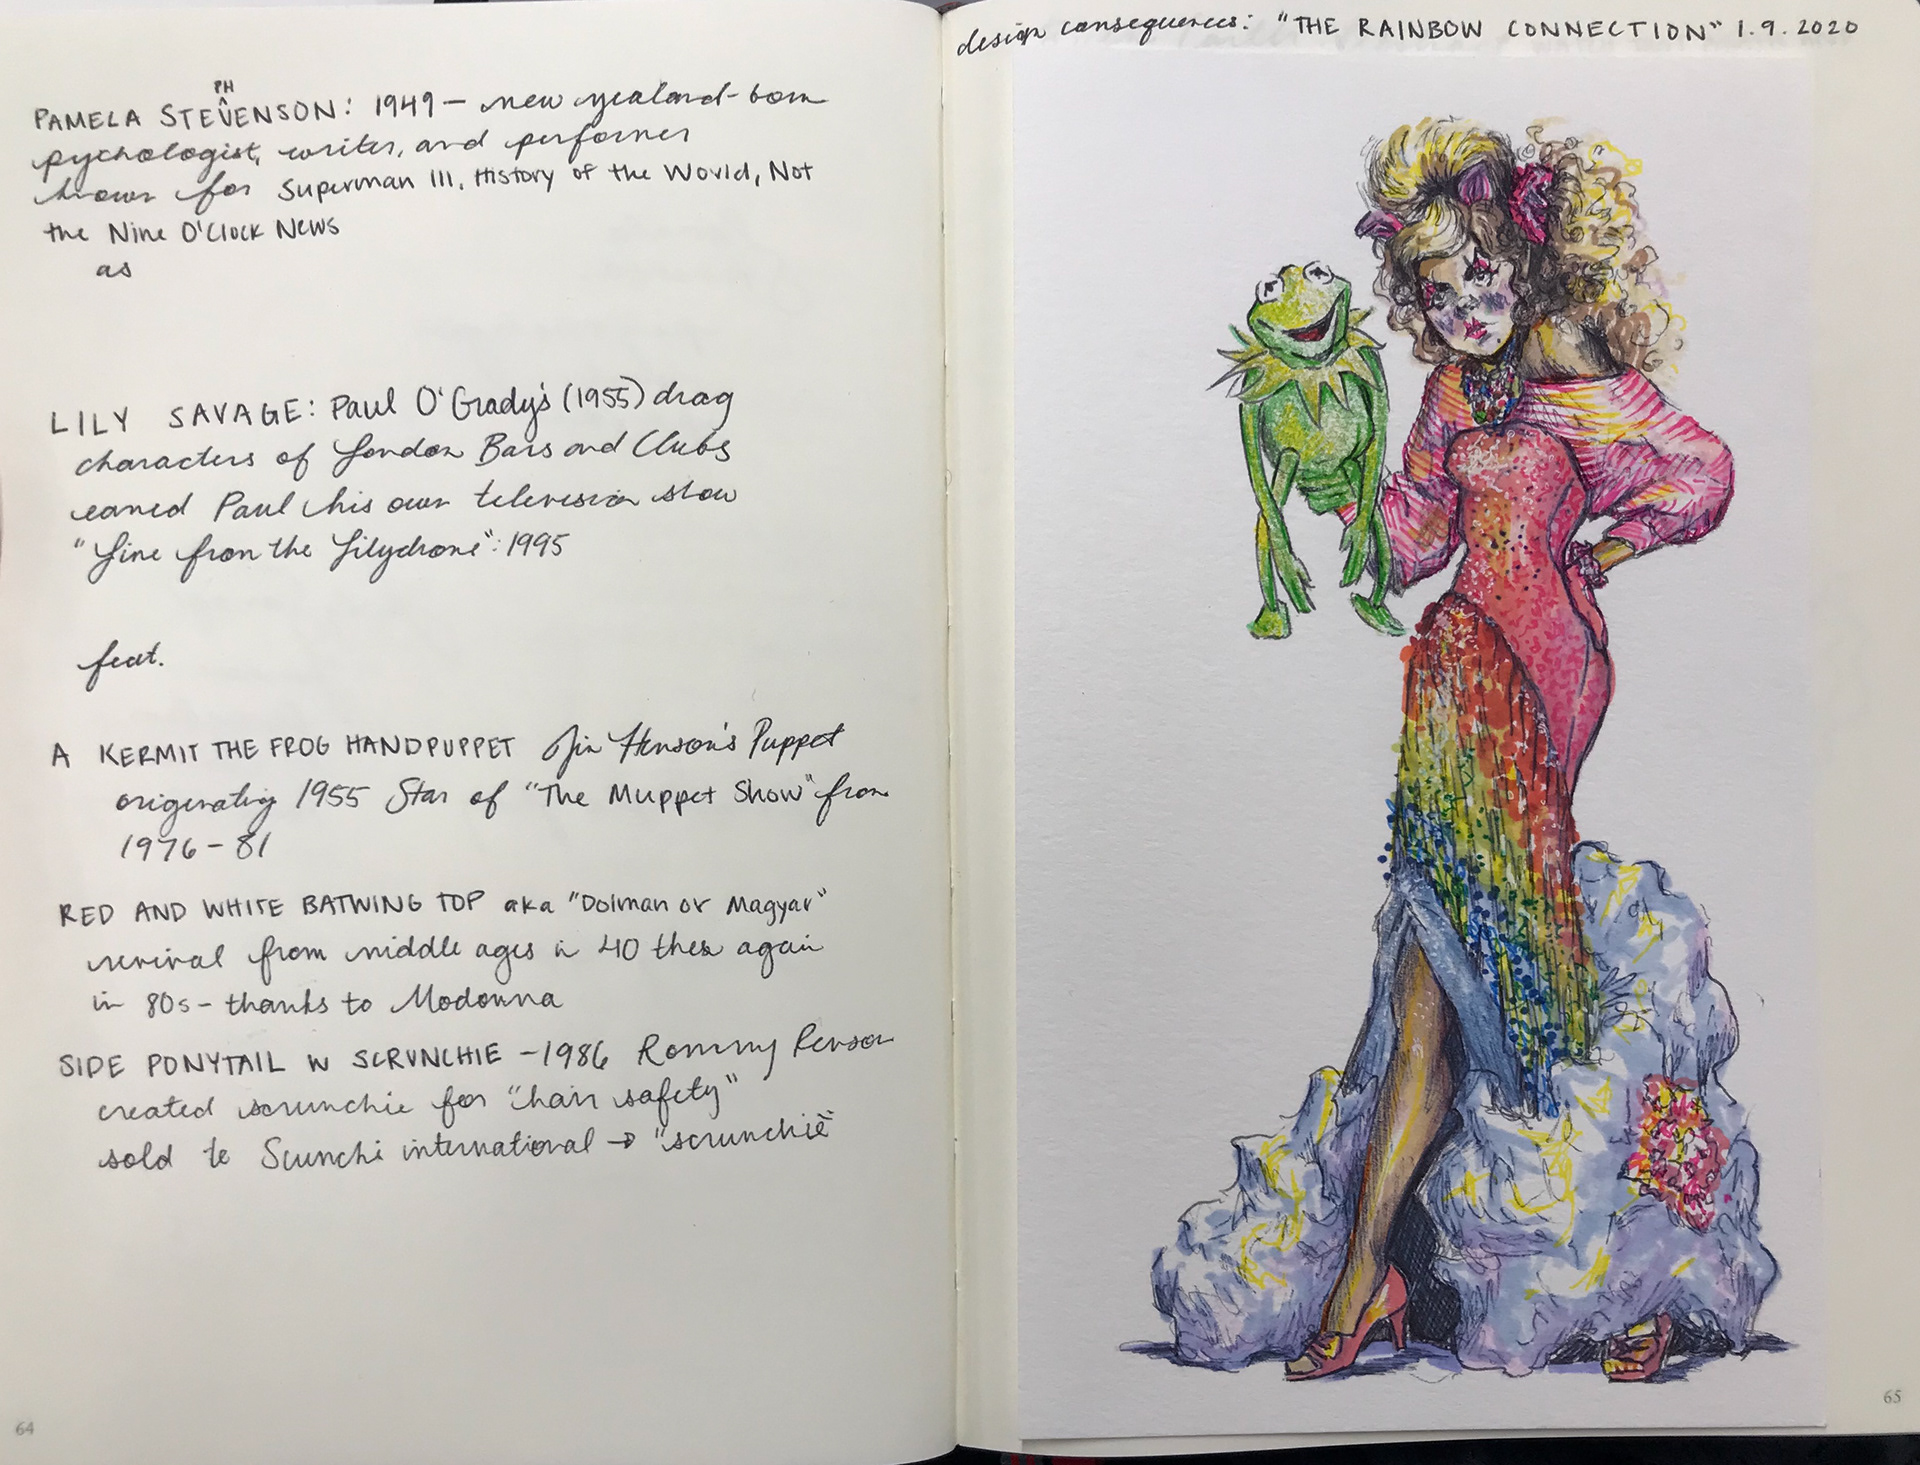 PAMELA STEVENSON: 1949 — new zealand-born
PH
pychologist, writer, and performer
known for Superman III, History of the World, Not
the Nine O'Clock News
as
LILY SAVAGE: Paul O'Grady's (1955) drag
characters of London Bars and Clubs
earned Paul his own television show
"Live from the Lilydrome": 1995
feat.
A KERMIT THE FROG HANDPUPPET Jim Henson's Puppet
originating 1955 Star of "The Muppet Show" from
1976-81
RED AND WHITE BATWING TOP aka "Dolman or Magyar"
revival from middle ages in 40 then again
in 80s - thanks to Madonna
SIDE PONYTAIL W SCRUNCHIE - 1986 Rommy Revson
created scrunchie for "hair safety"
sold to Scunchi international → "scrunchie"
64
design consequences: "THE RAINBOW CONNECTION" 1.9.2020
65